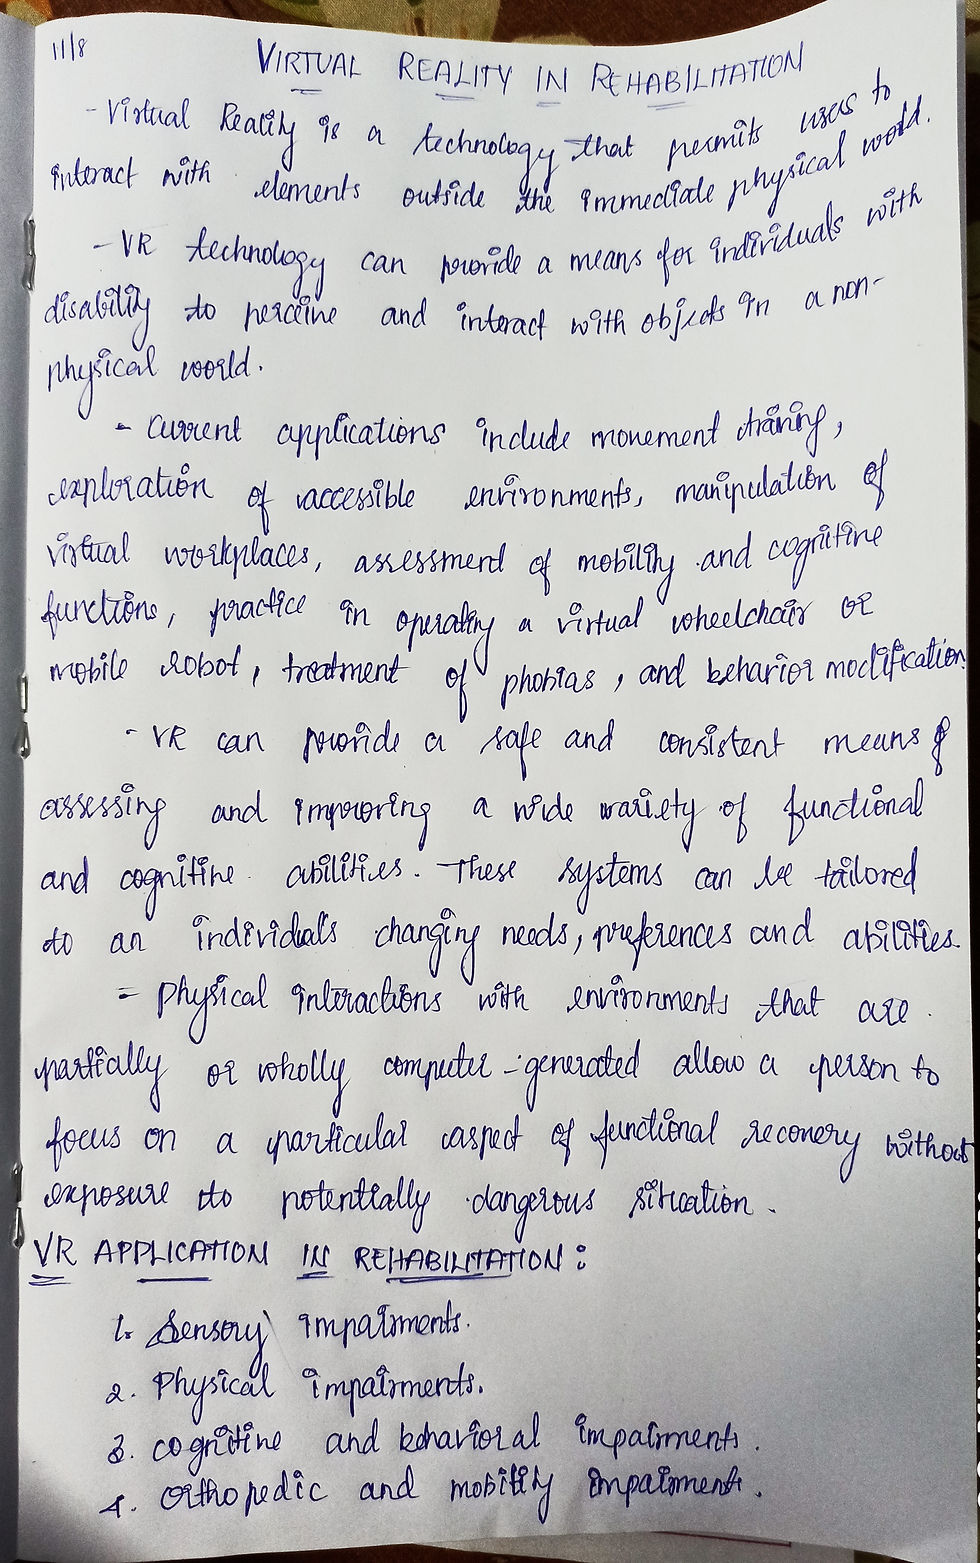 11/8
VIRTUAL REALITY IN REHABILITATION
- Virtual Reality is a technology that permits users to
interact with elements outside the immediate physical world.
- VR technology can provide a means for individuals with
disability to perceive and interact with objects in a non-
physical world.
- Current applications include movement training,
exploration of accessible environments, manipulation of
virtual workplaces, assessment of mobility and cognitive
functions, practice in operating a virtual wheelchair or
mobile robot, treatment of phobias, and behavior modification
- VR can provide a safe and consistent means of
assessing and improving a wide variety of functional
and cognitive abilities. These systems can be tailored
to an individual's changing needs, preferences and abilities.
- Physical interactions with environments that are
partially or wholly computer-generated allow a person to
focus on a particular aspect of functional recovery without
exposure to potentially dangerous situation.
VR APPLICATION IN REHABILITATION:
1. Sensory impairments.
2. Physical impairments.
3. cognitive and behavioral impairments.
4. Orthopedic and mobility impairments.